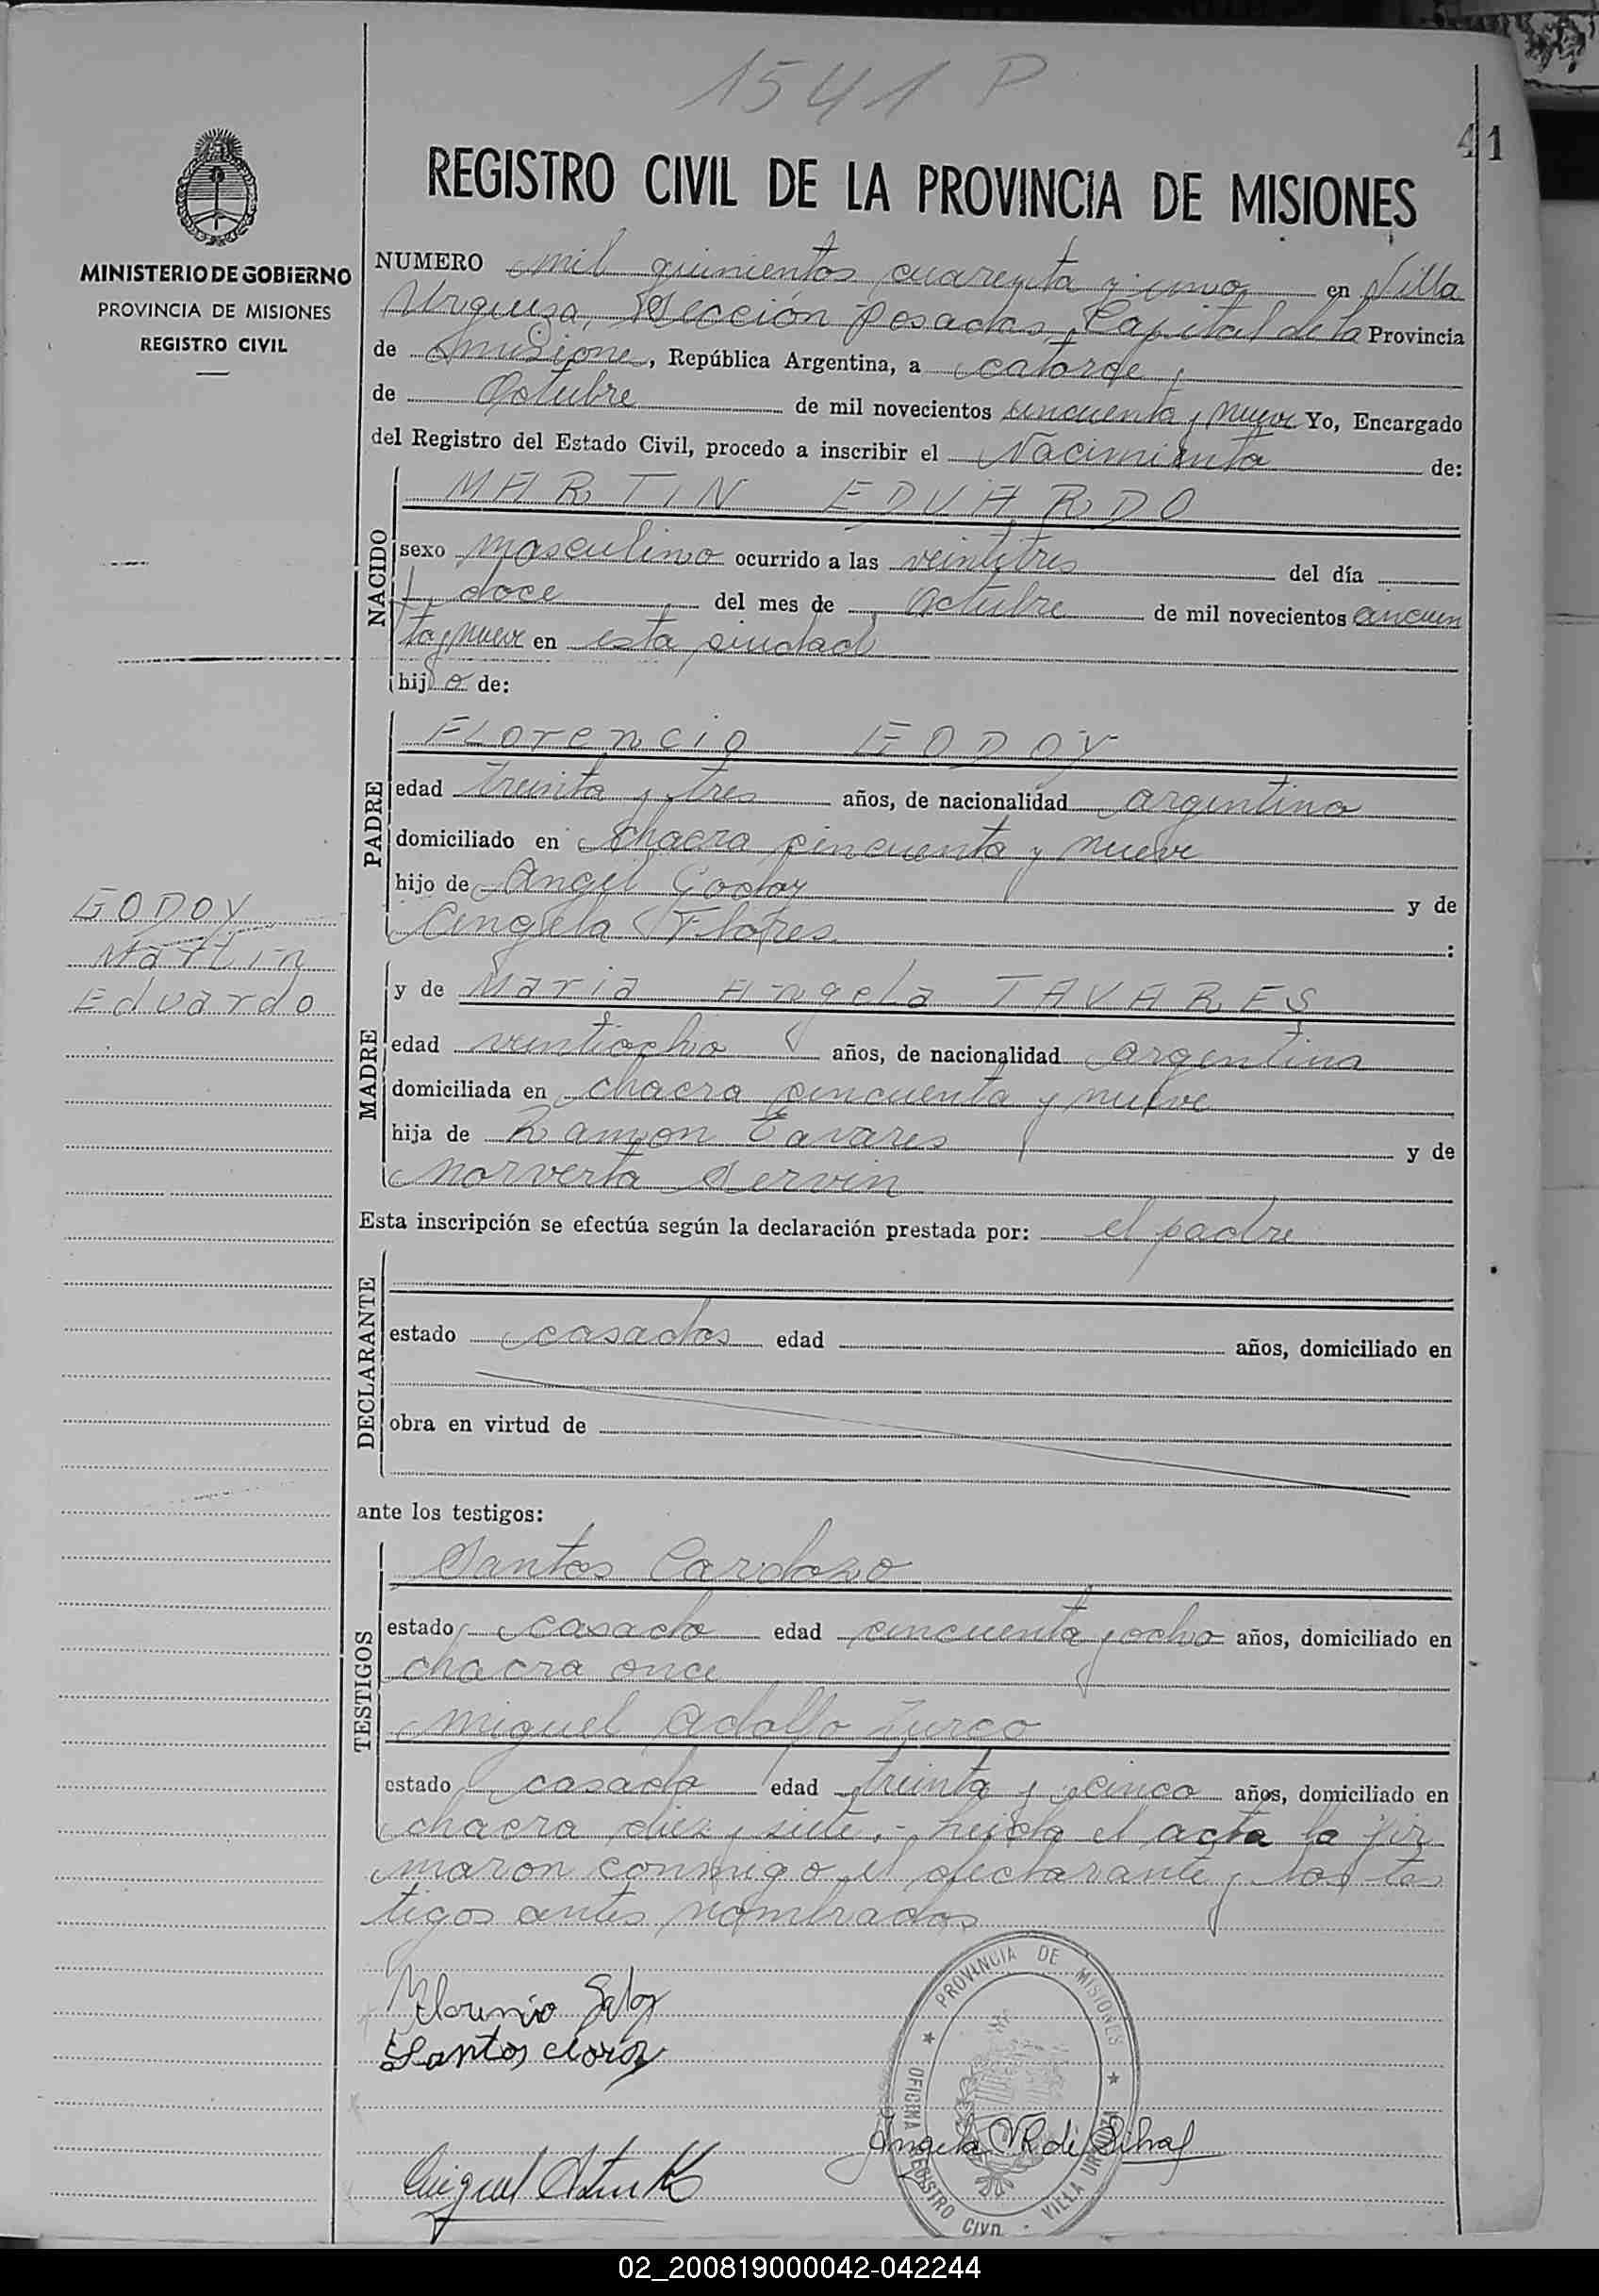 1541 P
41
REGISTRO CIVIL DE LA PROVINCIA DE MISIONES
MINISTERIO DE GOBIERNO
PROVINCIA DE MISIONES
REGISTRO CIVIL
NUMERO mil quinientos cuarenta y uno en Villa
Urquiza, Sección Posadas, Capital de la Provincia
de misione, República Argentina, a catorce
de Octubre de mil novecientos cincuenta y nueve Yo, Encargado
del Registro del Estado Civil, procedo a inscribir el Nacimiento de:
NACIDO
MARTIN EDUARDO
sexo masculino ocurrido a las veintitres del día
doce del mes de octubre de mil novecientos cincuen
ta y nueve en esta ciudad
hijo de:
PADRE
Florencio GODOY
edad treinta y tres años, de nacionalidad argentino
domiciliado en chacra cincuenta y nueve
hijo de Angel Godoy y de
Angela Flores :
GODOY
Martin
Eduardo
MADRE
y de Maria Angela TAVARES
edad veintiocho años, de nacionalidad argentina
domiciliada en chacra cincuenta y nueve
hija de Ramon Tavares y de
Norverta Servin
Esta inscripción se efectúa según la declaración prestada por: el padre
DECLARANTE
estado casados edad años, domiciliado en
obra en virtud de
ante los testigos:
TESTIGOS
Santos Cardozo
estado casado edad cincuenta y ocho años, domiciliado en
chacra once
miguel adolfo Zurco
estado casado edad treinta y cinco años, domiciliado en
chacra diez y siete.- leida el acta la fir
maron conmigo el declarante y los tes
tigos antes nombrados
Florencio Godoy
Santos
PROVINCIA DE MISIONES
OFICINA REGISTRO CIVIL - VILLA URQUIZA
Angela
Miguel
02_200819000042-042244